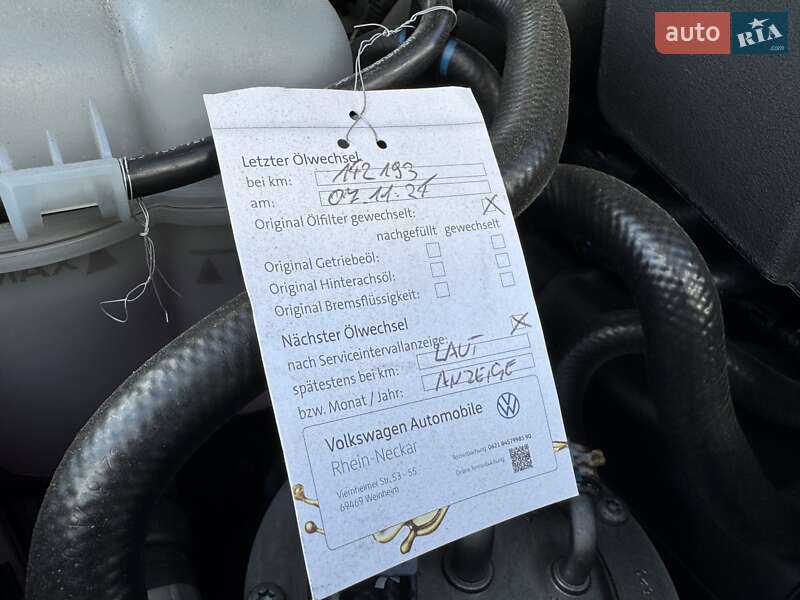 auto RIA .com
Letzter Ölwechsel
bei km: 142193
am: 07.11.21
Original Ölfilter gewechselt:
nachgefüllt gewechselt
Original Getriebeöl:
Original Hinterachsöl:
Original Bremsflüssigkeit:
Nächster Ölwechsel
nach Serviceintervallanzeige:
spätestens bei km: LAUT
bzw. Monat / Jahr: ANZEIGE
Volkswagen Automobile
Rhein-Neckar
Viernheimer Str. 53 – 55
69469 Weinheim
Online Terminbuchung:
MAX